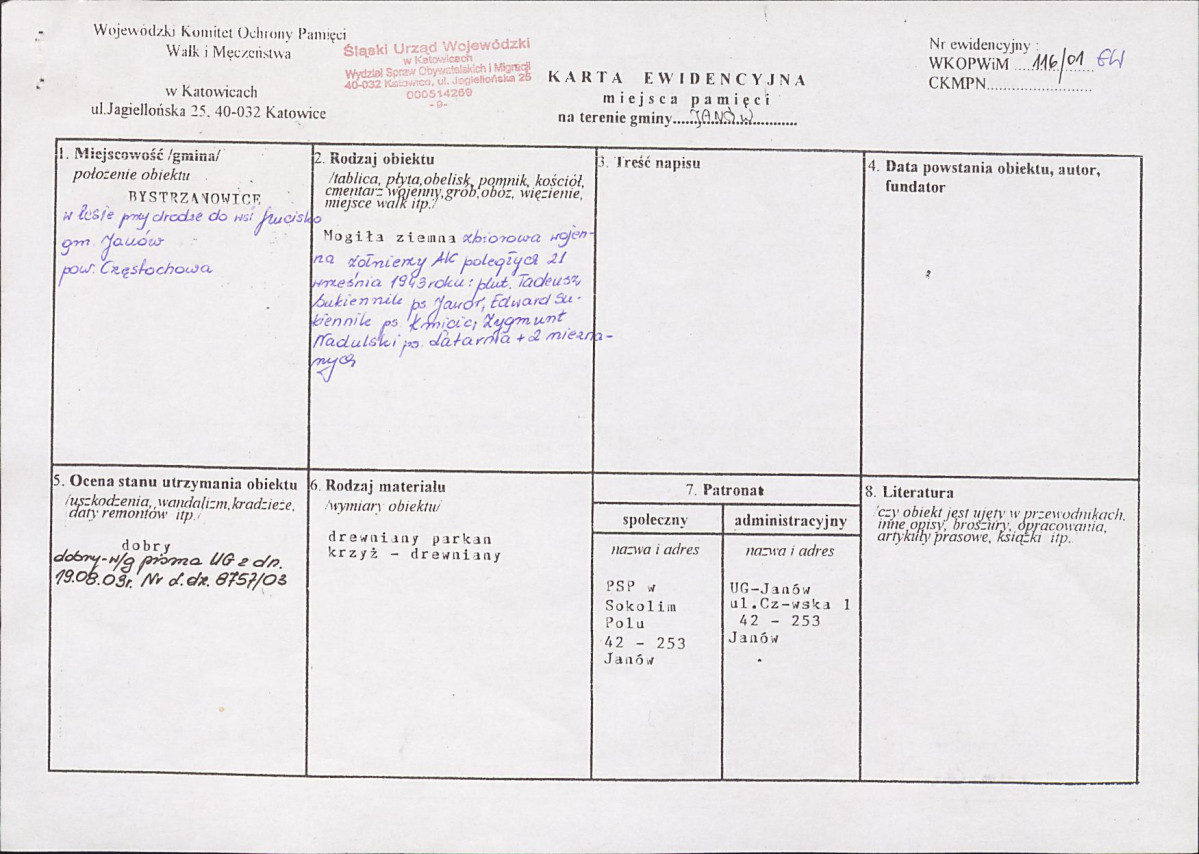 Wojewódzki Komitet Ochrony Pamięci
Walk i Męczeństwa
w Katowicach
ul.Jagiellońska 25, 40-032 Katowice
Śląski Urząd Wojewódzki
w Katowicach
Wydział Spraw Obywatelskich i Migracji
40-032 Katowice, ul. Jagiellońska 25
000514269
-9-
KARTA EWIDENCYJNA
miejsca pamięci
na terenie gminy....JANÓW............
Nr ewidencyjny :
WKOPWiM ....116/01 EW
CKMPN..........................
1. Miejscowość /gmina/
położenie obiektu
BYSTRZANOWICE
w lesie przy drodze do wsi
gm. Janów
pow. Częstochowa
2. Rodzaj obiektu
/tablica, płyta,obelisk, pomnik, kościół,
cmentarz wojenny,grób,obóz, więzienie,
miejsce walk itp./
Mogiła ziemna zbiorowa wojen-
na żołnierzy AK poległych 21
września 1943 roku: plut. Tadeusz
Sukiennik ps. Jawor, Edward Su-
kiennik ps. Kmicic, Zygmunt
Nadulski ps. Latarnia + 2 niezna-
nych
3. Treść napisu
4. Data powstania obiektu, autor,
fundator
?
5. Ocena stanu utrzymania obiektu
/uszkodzenia, wandalizm,kradzieże,
daty remontów itp./
dobry
dobry-w/g pisma UG z dn.
19.08.03r. Nr d.dz. 8757/03
6. Rodzaj materiału
/wymiary obiektu/
drewniany parkan
krzyż - drewniany
7. Patronat
społeczny
nazwa i adres
PSP w
Sokolim
Polu
42 - 253
Janów
administracyjny
nazwa i adres
UG-Janów
ul.Cz-wska 1
42 - 253
Janów
8. Literatura
/czy obiekt jest ujęty w przewodnikach,
inne opisy, broszury, opracowania,
artykuły prasowe, książki itp.